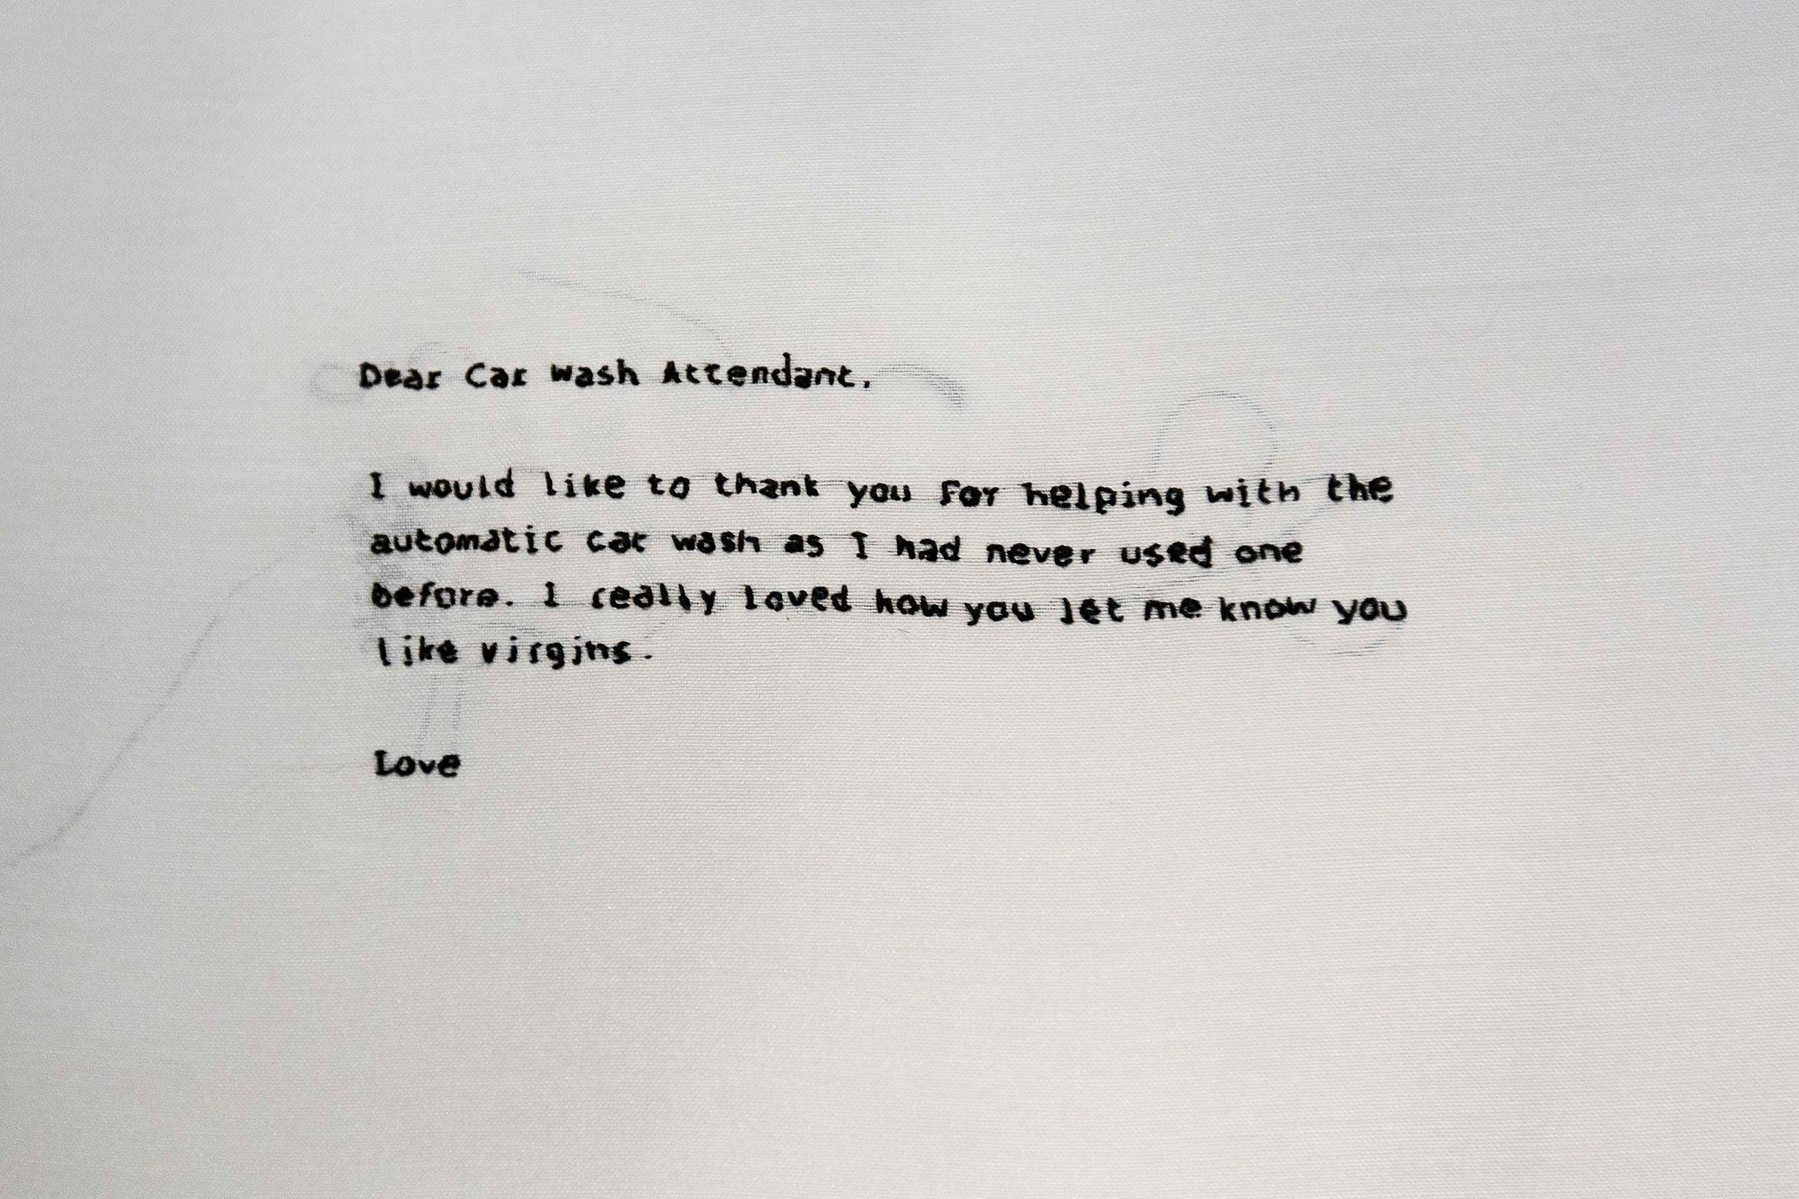 Dear Car Wash Attendant,
I would like to thank you for helping with the
automatic car wash as I had never used one
before. I really loved how you let me know you
like virgins.
Love